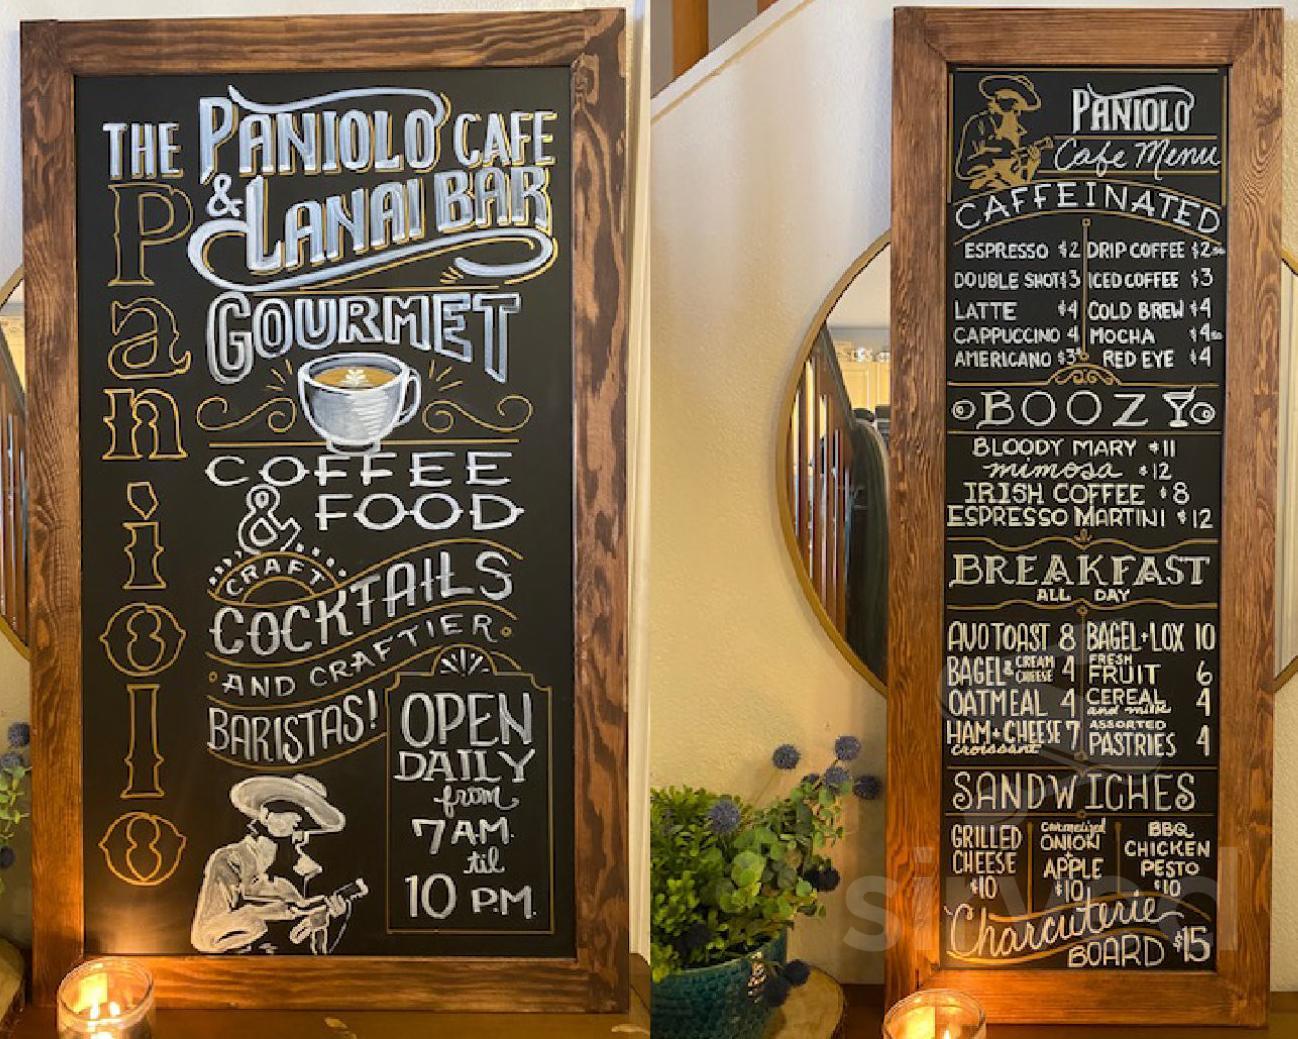 THE PANIOLO CAFE
& LANAI BAR
Paniolo
GOURMET
COFFEE
& FOOD
CRAFT
COCKTAILS
AND CRAFTIER
BARISTAS!
OPEN
DAILY
from
7 AM.
til
10 P.M.
PANIOLO
Cafe Menu
CAFFEINATED
ESPRESSO $2 DRIP COFFEE $2.50
DOUBLE SHOT $3 ICED COFFEE $3
LATTE $4 COLD BREW $4
CAPPUCCINO 4 MOCHA $4.50
AMERICANO $3 RED EYE $4
BOOZY
BLOODY MARY $11
mimosa $12
IRISH COFFEE $8
ESPRESSO MARTINI $12
BREAKFAST
ALL DAY
AVO TOAST 8 BAGEL+LOX 10
BAGEL & CREAM CHEESE 4 FRESH FRUIT 6
OATMEAL 4 CEREAL and milk 4
HAM+CHEESE croissant 7 ASSORTED PASTRIES 4
SANDWICHES
GRILLED
CHEESE
$10
caramelized
ONION
+
APPLE
$10
BBQ
CHICKEN
PESTO
$10
Charcuterie
BOARD $15
sirved